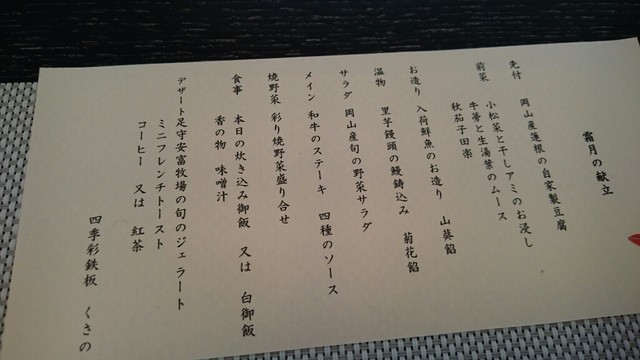 霜月の献立
先付 岡山産蓮根の自家製豆腐
小松菜と干しアミのお浸し
前菜 牛蒡と生湯葉のムース
秋茄子田楽
お造り 入荷鮮魚のお造り 山葵餡
温物 里芋饅頭の鰻鋳込み 菊花餡
サラダ 岡山産旬の野菜サラダ
メイン 和牛のステーキ 四種のソース
焼野菜 彩り焼野菜盛り合せ
食事 本日の炊き込み御飯 又は 白御飯
香の物 味噌汁
デザート 足守安富牧場の旬のジェラート
ミニフレンチトースト
コーヒー 又は 紅茶
四季彩鉄板 くさの